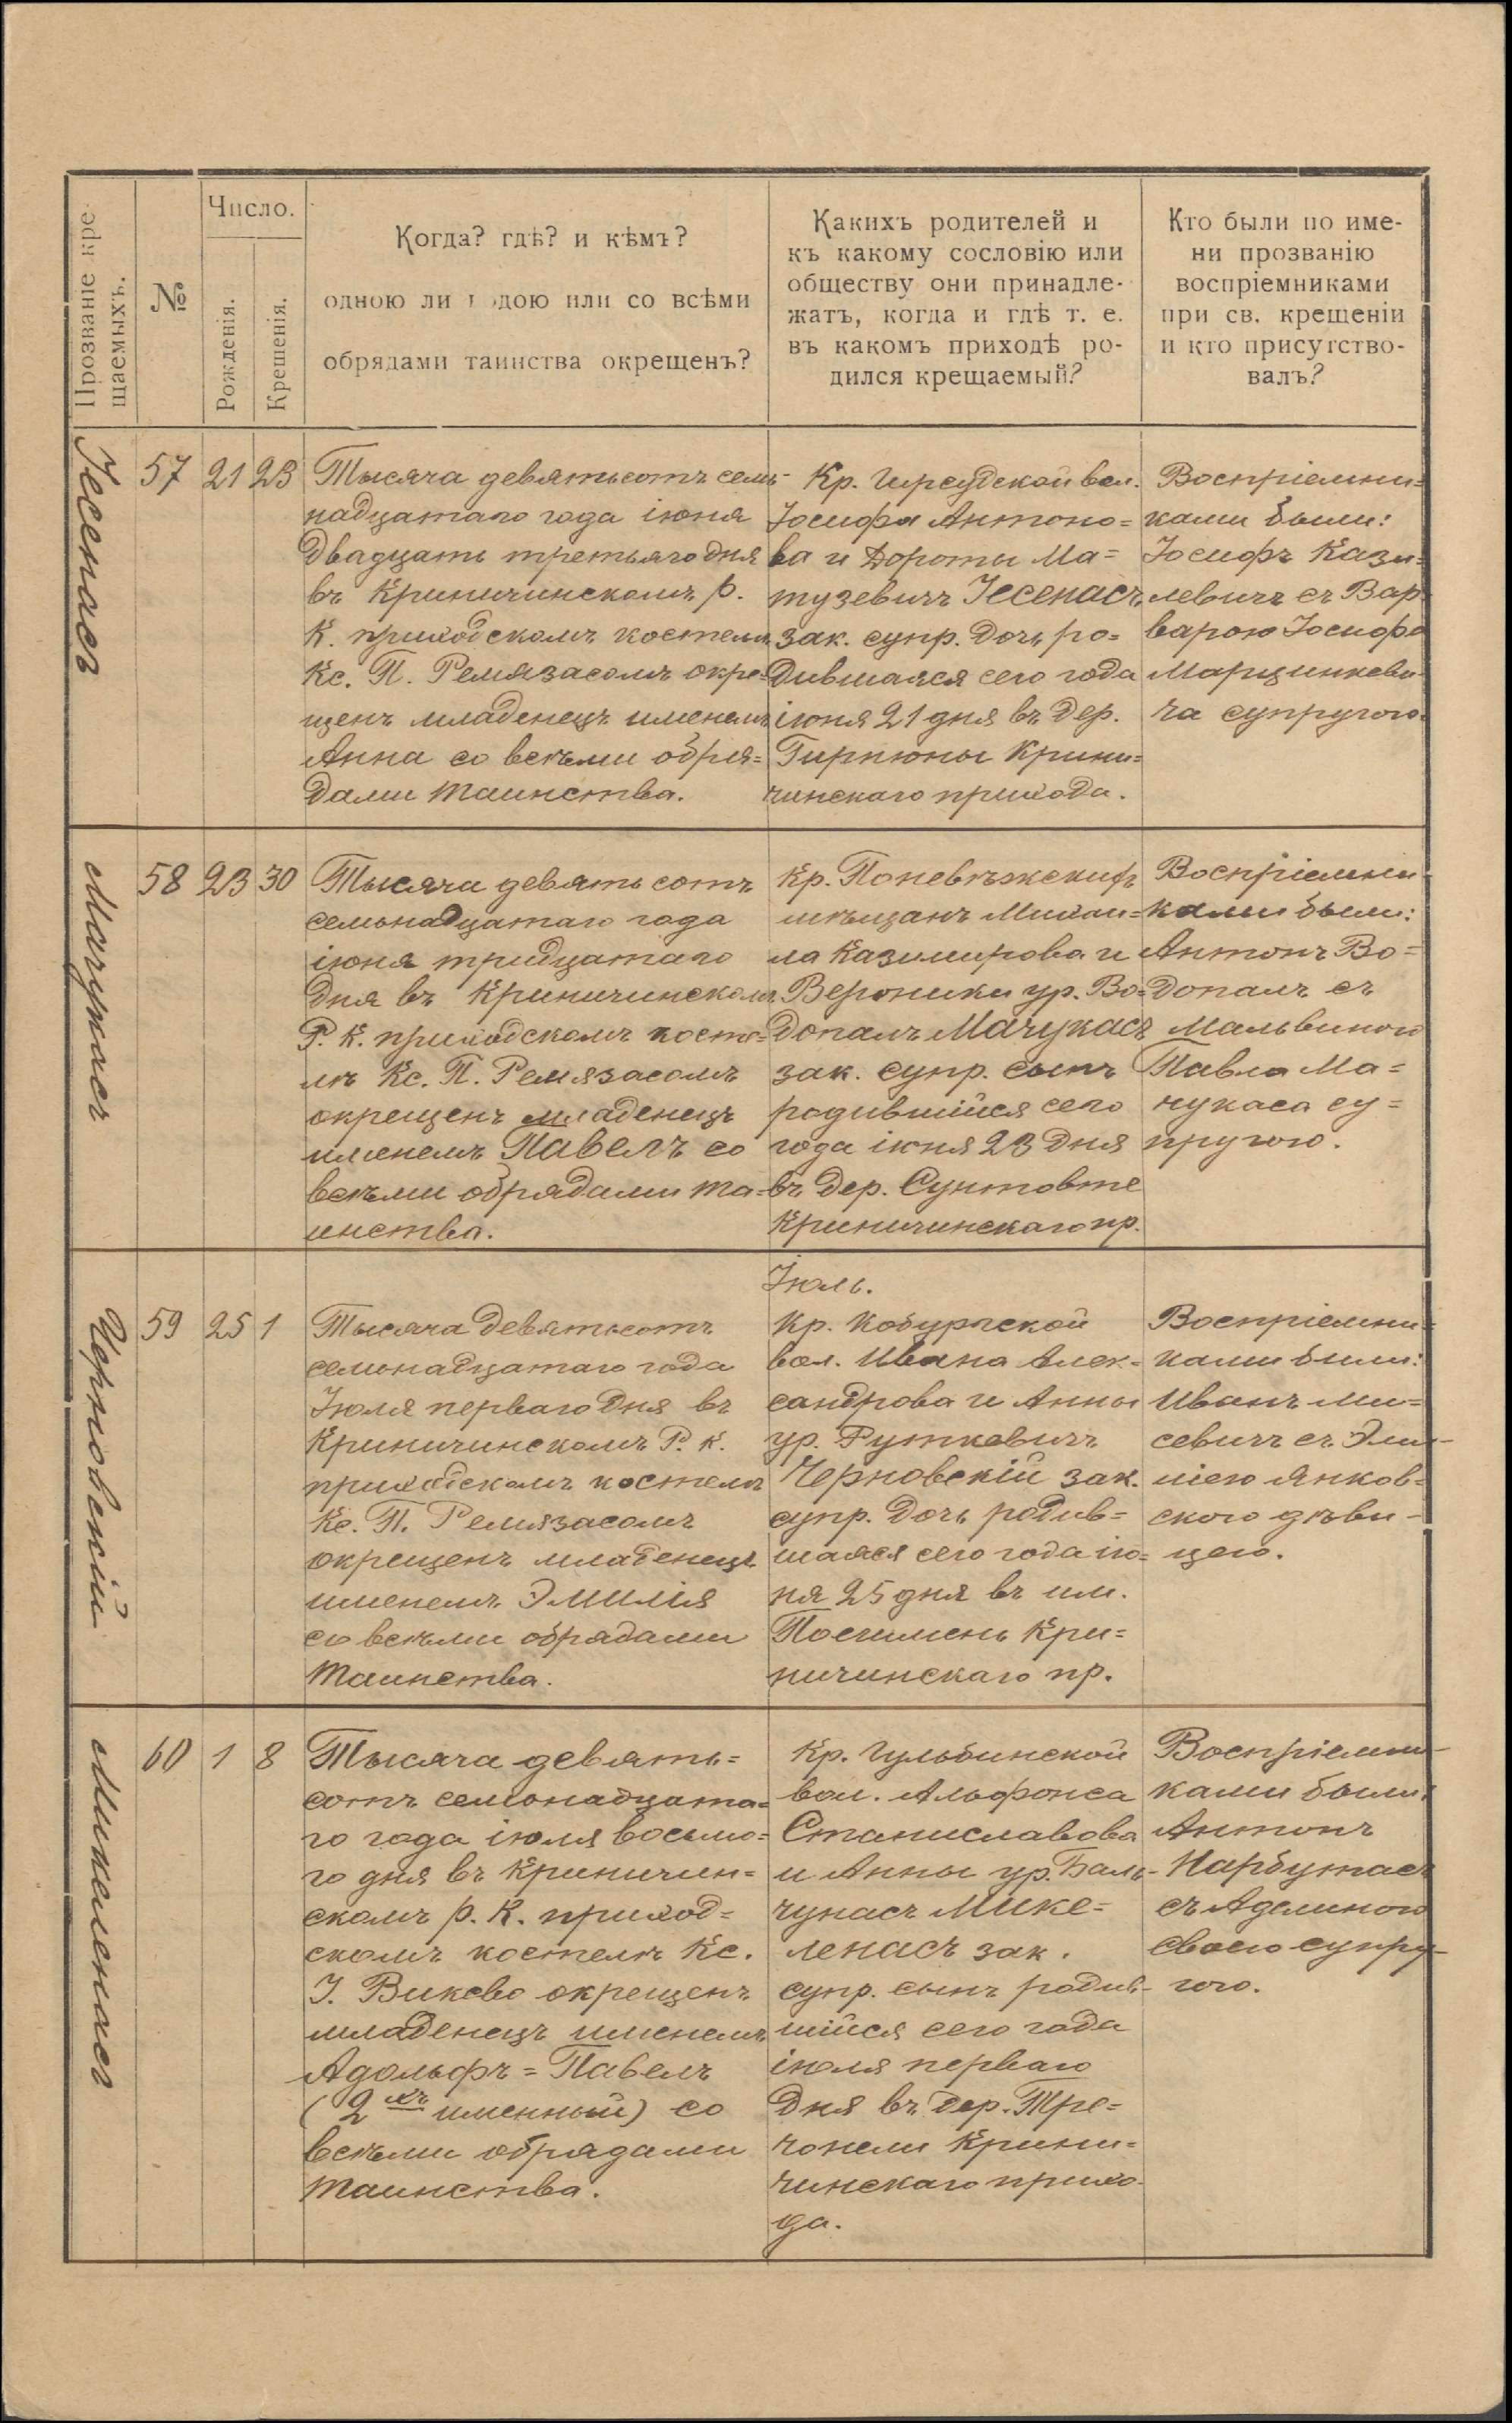 Прозваніе кре-
щаемыхъ.
№
Число.
Рожденія.
Крещенія.
Когда? гдѣ? и кѣмъ?
одною ли водою или со всѣми
обрядами таинства окрещенъ?
Какихъ родителей и
къ какому сословію или
обществу они принадле-
жатъ, когда и гдѣ т. е.
въ какомъ приходѣ ро-
дился крещаемый?
Кто были по име-
ни прозванію
воспріемниками
при св. крещеніи
и кто присутство-
валъ?
Іесенасъ
57
21
23
Тысяча девятьсотъ семь-
надцатаго года іюня
двадцать третьяго дня
въ Криничинскомъ р.
к. приходскомъ костелѣ
Кс. П. Ремязасомъ окре-
щенъ младенецъ именемъ
Анна со всѣми обря=
дами таинства.
Кр. вол.
Іосифа Антоно=
ва и Дороты Ма=
тузевичъ Іесенасъ
зак. супр. дочь ро=
дившаяся сего года
іюня 21 дня въ дер.
Гирнюны Крини=
чинскаго прихода.
Воспріемни=
ками были:
Іосифъ Кази=
левичъ съ Вар
варою Іосифа
Марцинкеви-
ча супругою.
Мачукасъ
58
23
30
Тысяча девять сотъ
семьнадцатаго года
іюня тридцатаго
дня въ Криничинскомъ
Р. К. приходскомъ косте=
лѣ Кс. П. Ремязасомъ
окрещенъ младенецъ
именемъ Павелъ со
всѣми обрядами та=
инства.
Кр. Поневѣжскихъ
мѣщанъ Михаи=
ла Казимирова и
Вероники ур. Во=
допалъ Мачукасъ
зак. супр. сынъ
родившійся сего
года іюня 23 дня
въ дер. Сунтовте
Криничинскаго пр.
Воспріемни
ками были:
Антонъ Во=
допалъ съ
Мальвиною
Павла Ма=
чукаса су=
пругою.
Іюль.
Черновскій
59
25
1
Тысяча девятьсотъ
семьнадцатаго года
Іюля перваго дня въ
Криничинскомъ Р. К.
приходскомъ костелѣ
Кс. П. Ремязасомъ
окрещенъ младенецъ
именемъ Эмилія
со всѣми обрядами
таинства.
Кр. Кобургской
вол. Ивана Алек=
сандрова и Анны
ур. Рутковичъ
Черновскій зак.
супр. дочь родив=
шаяся сего года ію=
ня 25 дня въ им.
Кри=
ничинскаго пр.
Воспріемни=
ками были:
Иванъ Ми=
севичъ съ Эми-
ліею Янков=
ского дѣви-
цею.
Микеленасъ
60
1
8
Тысяча девять=
сотъ семьнадцата=
го года іюля восьмо=
го дня въ Криничин=
скомъ р. К. приход=
скомъ костелѣ Кс.
І. Виксво окрещенъ
младенецъ именемъ
Адольфъ=Павелъ
(2хъ именный) со
всѣми обрядами
таинства.
Кр. Гульбинской
вол. Альфонса
Станиславова
и Анны ур. Баль-
чунасъ Мике=
ленасъ зак.
супр. сынъ родив-
шійся сего года
іюля перваго
дня въ дер. Тре=
чонели Крини=
чинскаго прихо-
да.
Воспріемни-
ками были:
Антонъ
Нарбутасъ
съ Аделиною
своею супру-
гою.